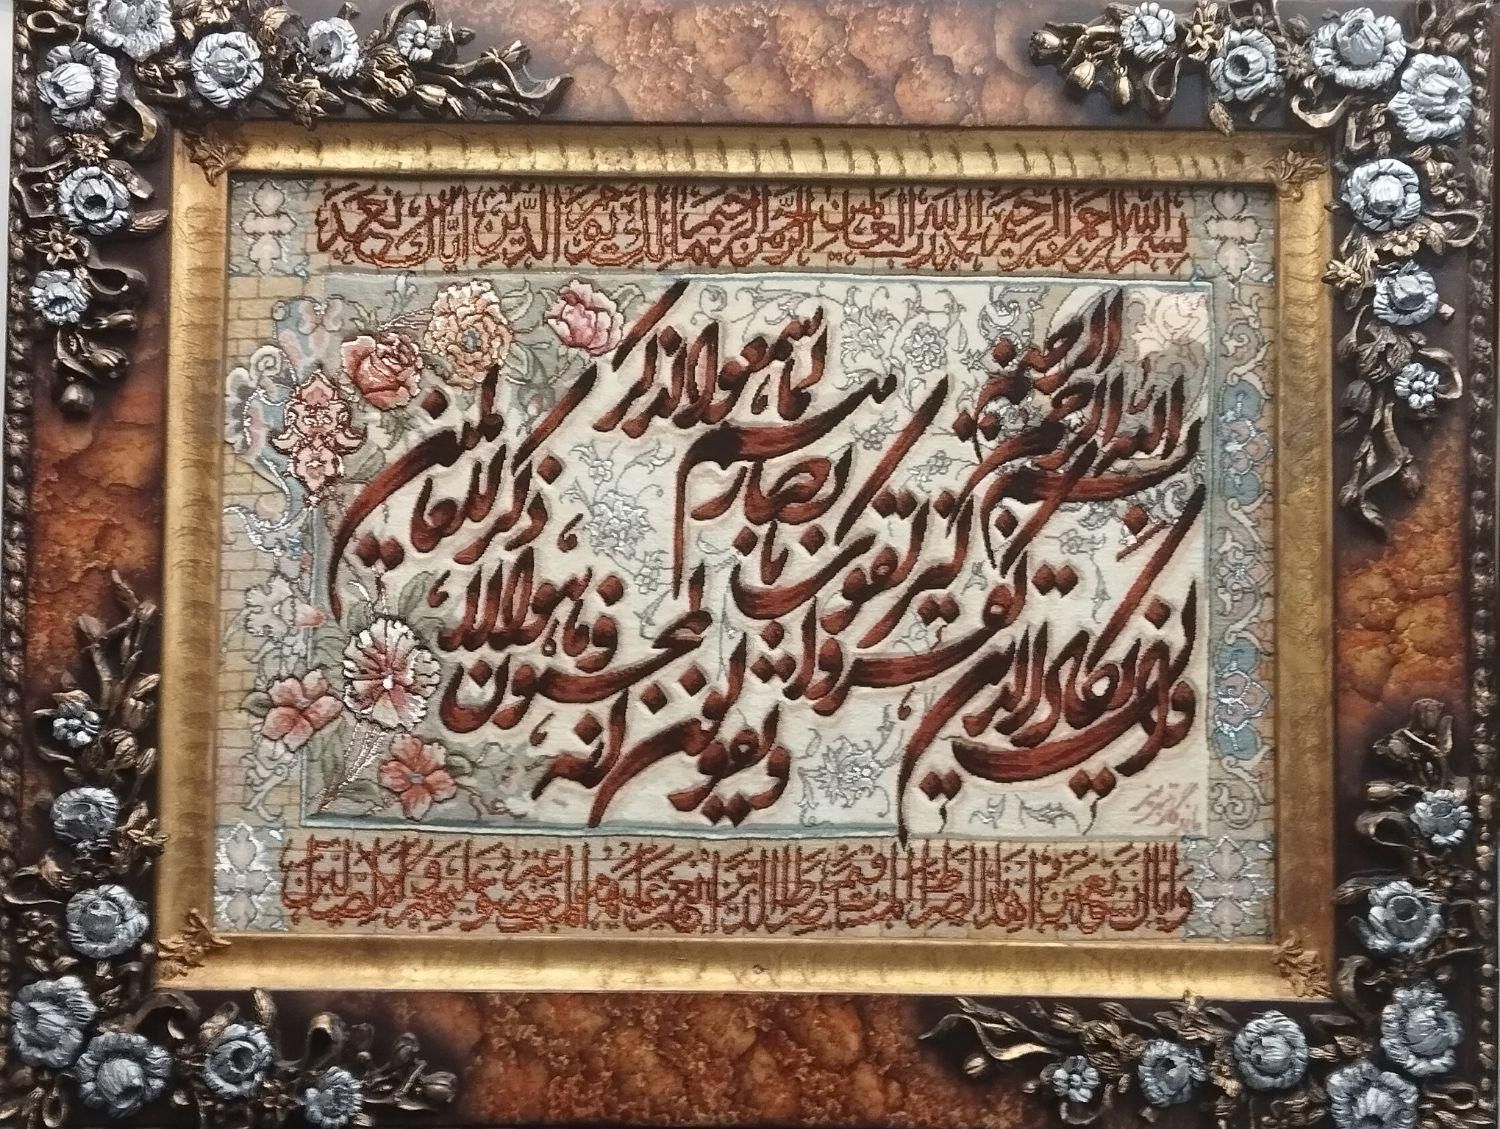 بسم الله الرحمن الرحیم الحمد لله رب العالمین الرحمن الرحیم مالك یوم الدین ایاك نعبد
بسم الله الرحمن الرحیم
وان یکاد الذین کفروا لیزلقونک بابصارهم لما سمعوا الذکر
ویقولون انه لمجنون وما هو الا ذکر للعالمین
وایاك نستعین اهدنا الصراط المستقیم صراط الذین انعمت علیهم غیر المغضوب علیهم ولا الضالین